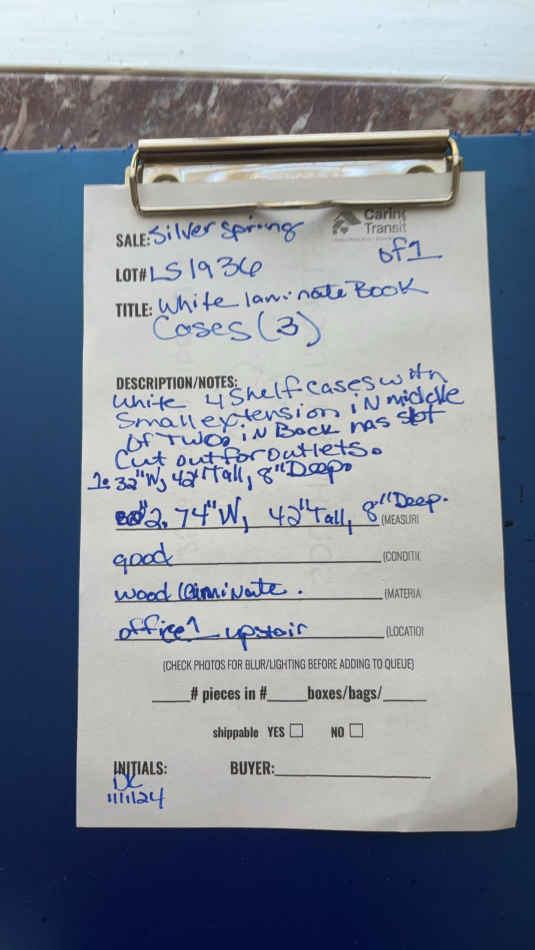 Caring
Transit
SALE: Silver Spring
of 1
LOT# LS1936
TITLE: White laminate Book
Cases (3)
DESCRIPTION/NOTES:
White 4 Shelf cases with
Small extension iN middle
of TWO. iN Back has slot
Cut out for outlets.
1. 32"W, 42"Tall, 8"Deep.
2. 74"W, 42"Tall, 8"Deep.
(MEASURE
good (CONDITIC
wood laminate. (MATERIA
office 1 upstair (LOCATIO
(CHECK PHOTOS FOR BLUR/LIGHTING BEFORE ADDING TO QUEUE)
# pieces in # boxes/bags/
shippable YES NO
INITIALS: BUYER:
DC
11/1/24